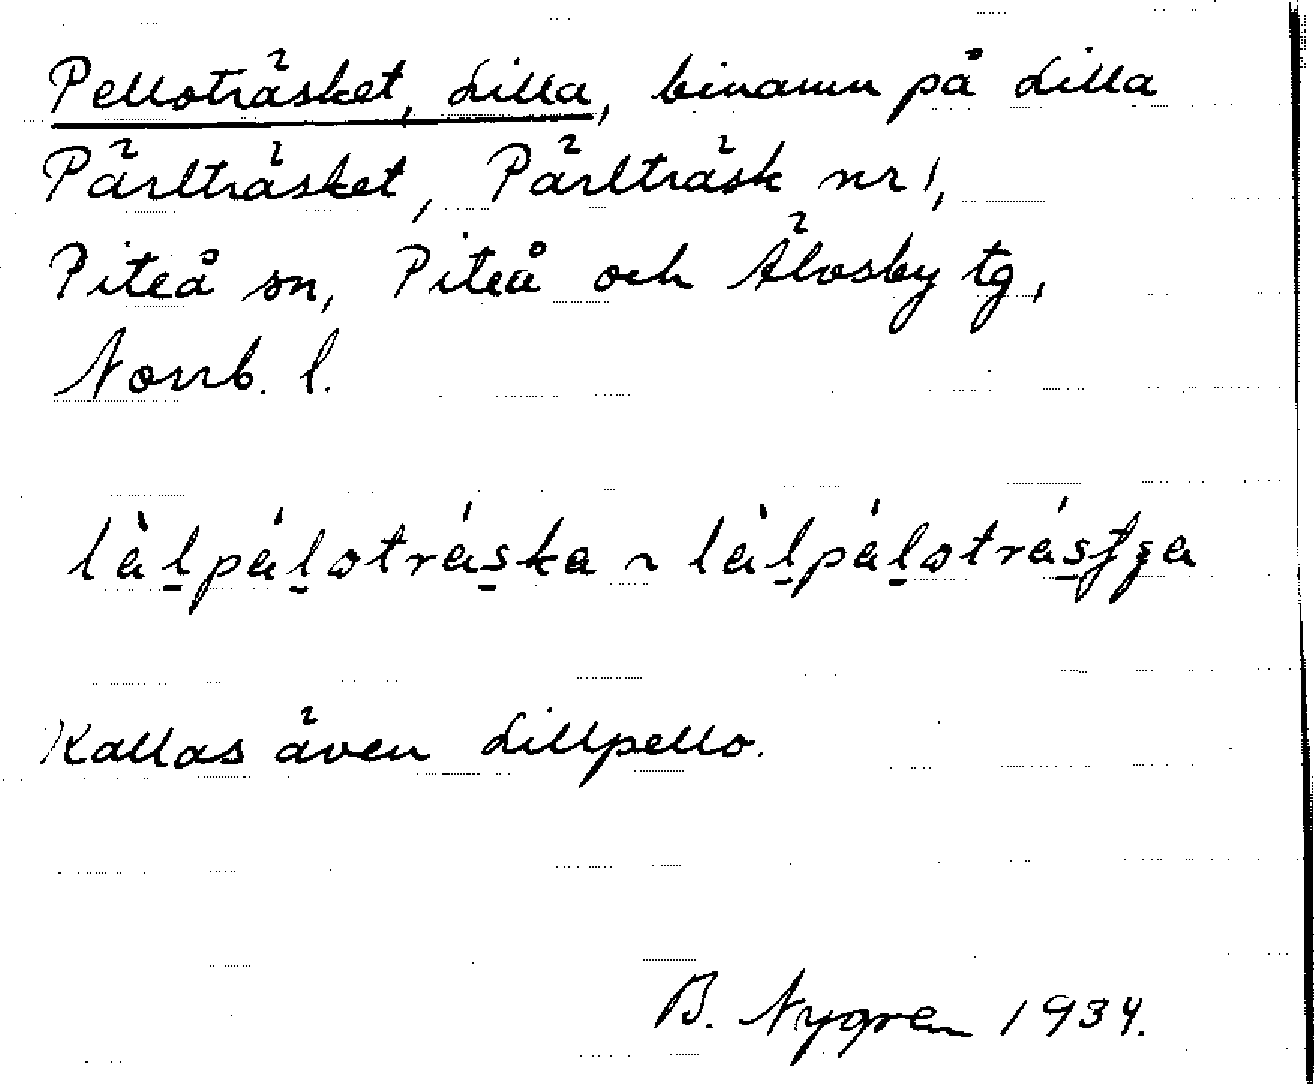 Pelloträsket, Lilla, binamn på Lilla
Pärlträsket, Pärlträsk nr 1,
Piteå sn, Piteå och Älvsby tg,
Norrb. l.
làl̲pál̲otrás̲ka ~ làl̲pál̲otrás̲tga
Kallas även Lillpello.
B. Nygren 1934.